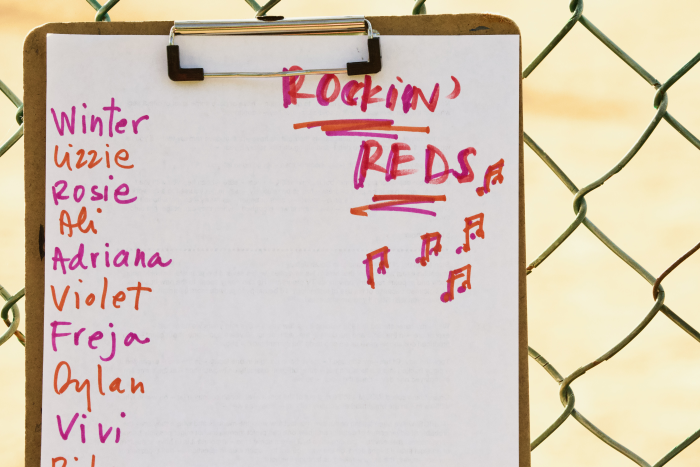 Rockin'
REDS
Winter
Lizzie
Rosie
Ali
Adriana
Violet
Freja
Dylan
Vivi